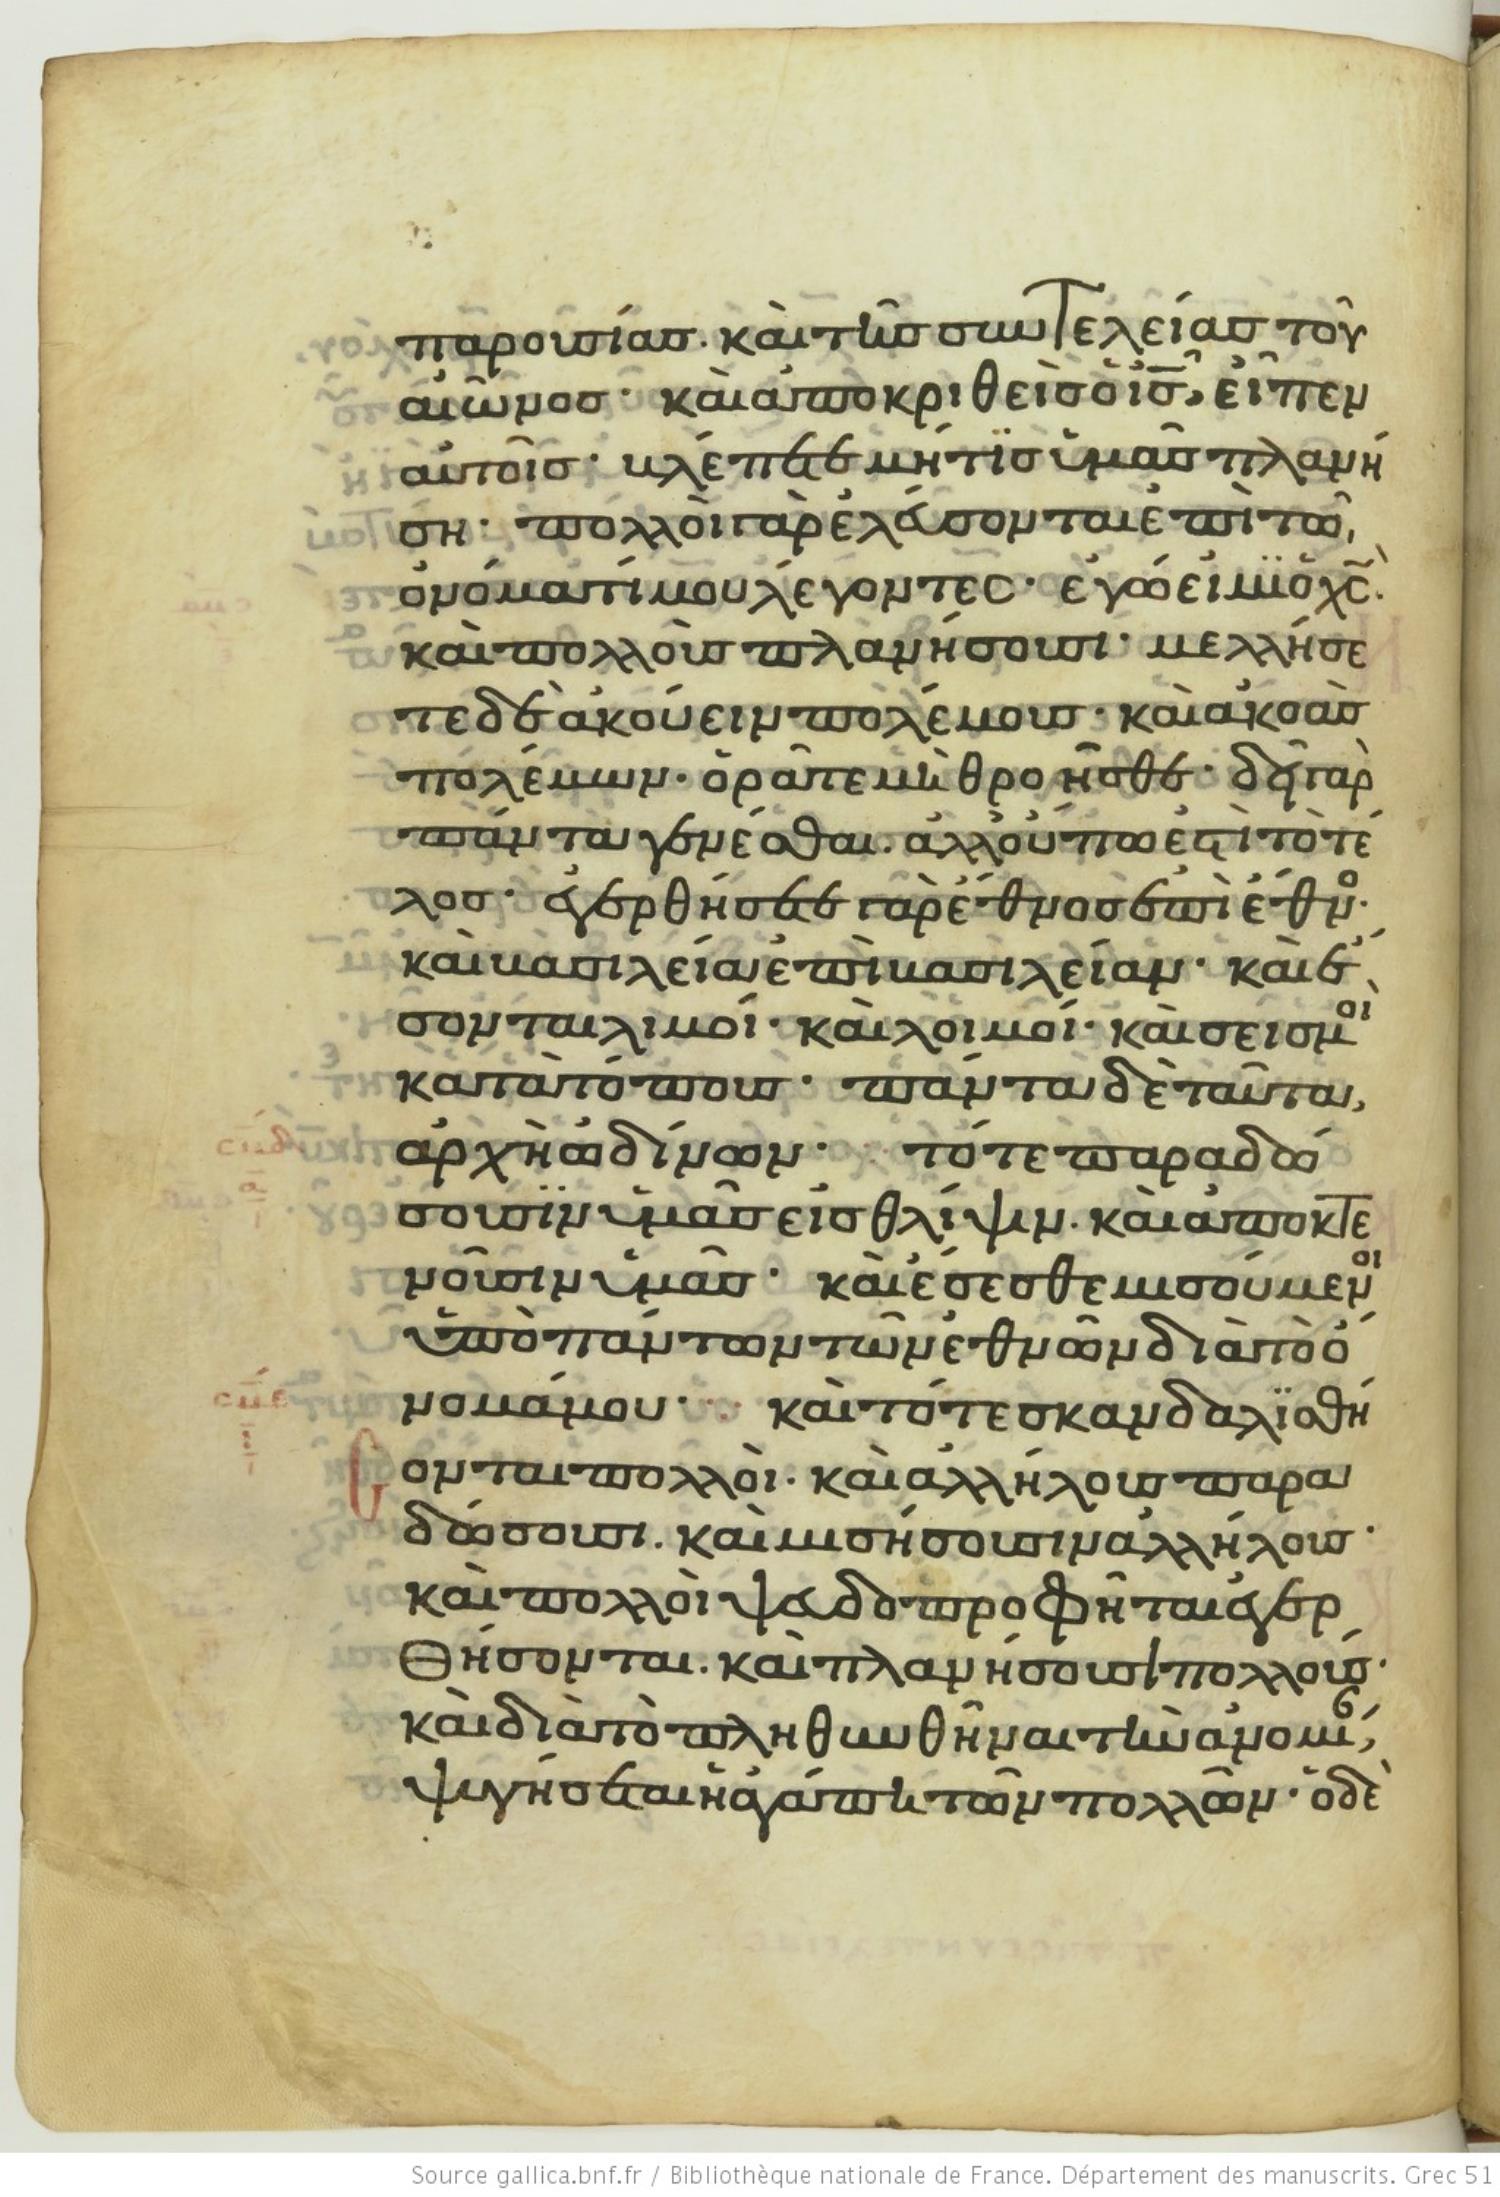 παρουσίας. καὶ τῆς συντελείας τοῦ
αἰῶνος· καὶ ἀποκριθεὶς ὁ ις̅, εἶπεν
αὐτοῖς· βλέπετε μή τϊς ὑμᾶς πλανή
ση· πολλοὶ γὰρ ἐλεύσονται ἐπὶ τῶ,
ὀνόματί μου λέγοντες· ἐγώ εἰμϊ ὁ χς̅.
καὶ πολλοὺς πλανήσουσι· μελλήσε
τε δὲ ἀκούειν πολέμους· καὶ ἀκοὰς
πολέμων· ὁρᾶτε μὴ θροῆσθε· δεῖ γὰρ
πάντα γενέσθαι. ἀλλ' οὔπω ἐστὶ τὸ τέ
λος· ἐγερθήσεται γὰρ ἔθνος ἐπὶ ἔθνο·
καὶ βασιλεία ἐπὶ βασιλείαν· καὶ ἔ
σονται λιμοί· καὶ λοιμοί· καὶ σεισμοὶ
κατὰ τόπους· πάντα δὲ ταῦτα,
ἀρχὴ ὠδίνων· τότε παραδώ
σουσϊν ὑμᾶς εἰς θλίψιν. καὶ ἀποκτε
νοῦσιν ὑμᾶς· καὶ ἔσεσθε μισούμενοι
ὑπὸ πάντων τῶν ἐθνῶν διὰ τὸ ὄ
νομά μου· καὶ τότε σκανδαλϊσθή
ονται πολλοὶ. καὶ ἀλλήλους παρα
δώσουσι. καὶ μισήσουσιν ἀλλήλους·
καὶ πολλοὶ ψευδοπροφῆται ἐγερ
θήσονται. καὶ πλανήσουσι πολλούς·
καὶ διὰ τὸ πληθυνθῆναι τὴν ἀνομί,
ψυγήσεται ἡ ἀγάπη τῶν πολλῶν· ὁ δὲ
Source gallica.bnf.fr / Bibliothèque nationale de France. Département des manuscrits. Grec 51